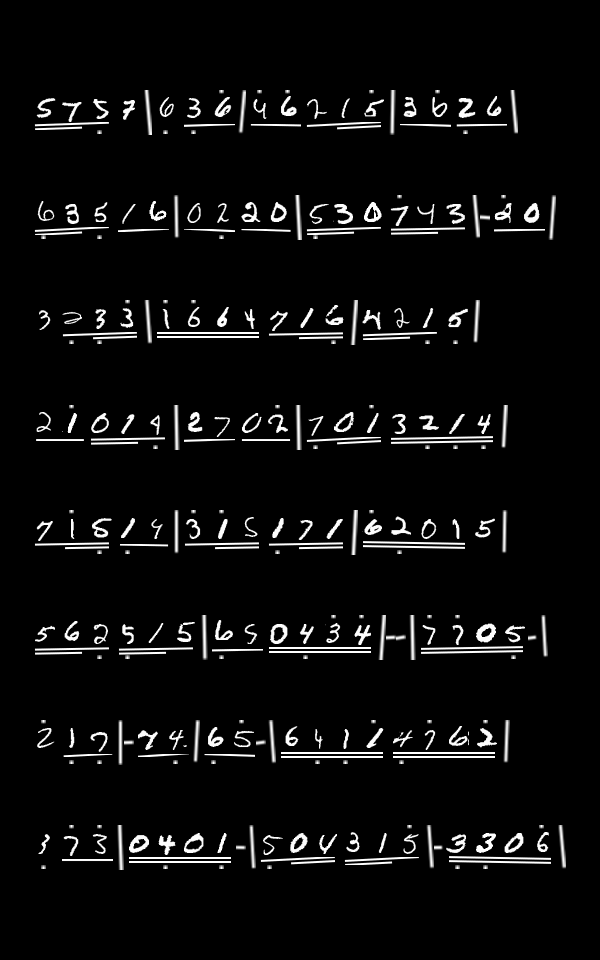 5757|636|46215|3626
63516|0220|530743|-20
3233|1664716|4215
21014|2702|7013214
71514|315171|62015
562515|650434|--|7705-
217|-74|65-|64114762
373|0401-|504315|-3306